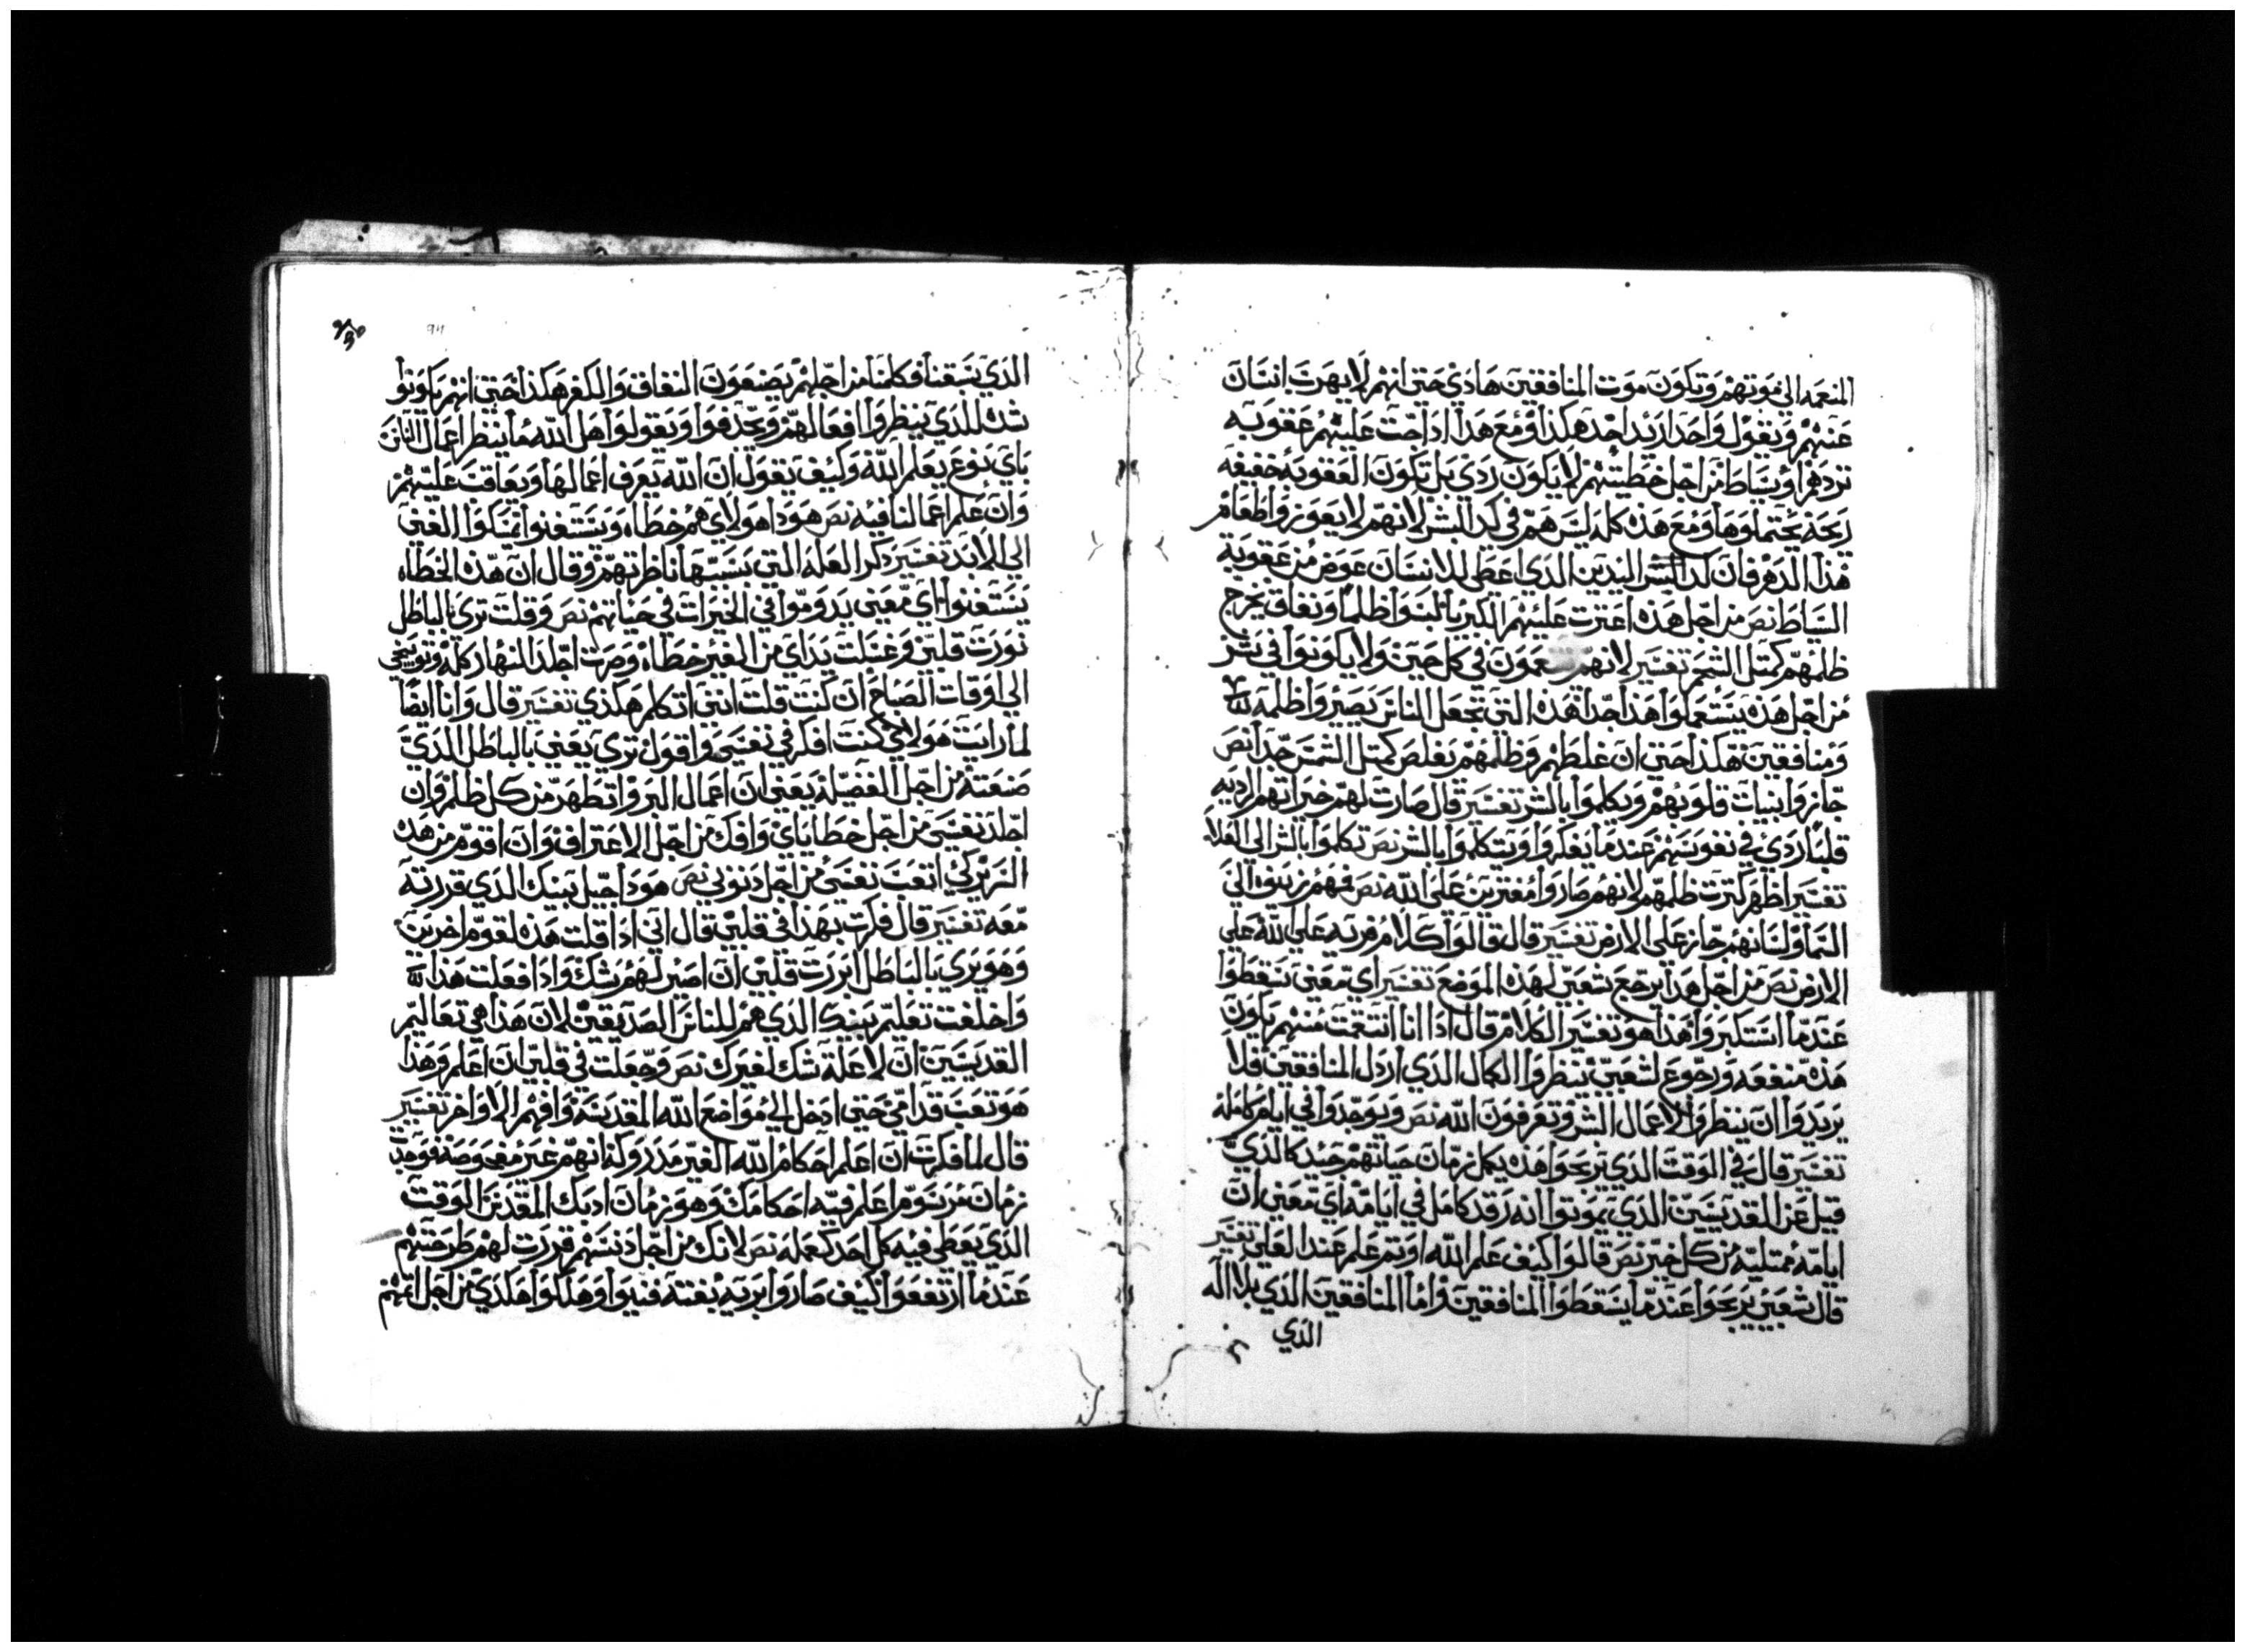 المنعمه الي موتهم وتكون موت المنافقين هادي حتي انهم لا يهرب انسان
عنهم ويقول واحد اريد اخد هكدا ومع هدا ادا اجت عليهم عقوبه
تردهم اوسياط من اجل خطيتهم لا يكون ردي بل تكون العقوبه خفيفه
ريحه يحتملوها ومع هذه كله ليس هم في كد البشر لانهم لا يعوزوا طعام
هذا الدهر فان كد البشر اليدين الدي اعطي للانسان عوض من عقوبة
السياط نص من اجل هذه اعترت عليهم الكبريا لبسوا ظلما ونفاق يخرج
ظلمهم كمتل الشحم تفسير لانهم في كل حين ولا يكونوا في شر
من اجل هذه يستعملوا هذا جدا هذه التي تجعل الناس بصير واظلمه
ومنافقين هكذا حتي ان غلطهم وظلمهم يفلص كمتل الشمس جدا نص
جازوا بنيات قلوبهم وبكلموا بالشر تفسير قال صارت لهم خيراتهم الرديه
قلبا ردي في نفوسهم عندما يفكروا ويتكلموا بالشر نص تكلموا بالشر الي العلا
تفسير اظهر كترت ظلمهم لانهم صاروا مفترين علي الله نص فمهم رينوه الي
السما ولسانهم جاز علي الارض تفسير قال قالوا كلام فريه علي الله علي
الارض نص من اجل هدا يرجع شعبي لهذه الموضع تفسير اي معني يسقطوا
عندما استكبروا هدا هو تفسير الكلام قال ادا انا انتقمت منهم يكون
هذه منفعه ورجوع لشعبي ينظروا الكمال الدي اردل المنافقين فلا
يريدوا ان ينظروا لاعمال الشر وتعرفون الله نص ويوجدوا في ايام كامله
تفسير قال في الوقت الدي يرجعوا هذه يكمل زمان حياتهم جيد كالدي
قيل عن القديسين الدي يموتوا انه رقد كامل في ايامه اي معني ان
ايامه ممتليه من كل خير نص قالوا كيف علم الله او تم علم عند العلي تفسير
قال شعبي يرجعوا عندما يسقطوا المنافقين واما المنافقين الدي بلا اله
الدي
الدي يسقنا فكلمنا من اجلهم يضعون النفاق والكفر هكدا حتي انهم يكونوا
شك للدي ينظروا افعالهم ويجدفوا ويقولوا هل الله ما ينظر اعمال الناس
باي نوع يعلم الله وكيف يقول ان الله يعرف اعمالها ويعاقب عليهم
وان علم اعمالنا فيه نص هودا هولاي هم خطاه ويستغنوا تمسكوا الغني
الي الابد تفسير دكر العله التي بسببها ناظر بهم وقال ان هذه الخطاه
يستغنوا اي معني يدوموا في الخيرات في حياتهم نص وقلت تري بالباطل
نورت قلبي وغسلت يداي من الغير خطاه وصرت اجلد النهار كله وتوبيخي
الي اوقات الصباح ان كنت قلت انني اتكلم هكدي تفسير قال وانا ايضا
لما رايت هولاي كنت افكر في نفسي واقول تري يعني بالباطل الدي
صنعته من اجل الفضيله يعني ان اعمال البر واتطهر من كل ظلم وان
اجلد نفسي من اجل خطاياي وافك من اجل الاعتراف وان اقوم من هذه
السريركي اتعب نفسي من اجل دنوبي نص هودا جيل بنيك الدي قررته
معه تفسير قال فكرت بهذا في قلبي قال اني ادا قلت هذه لقوم اخرين
وهو بري بالباطل ابررت قلبي ان اصير لهم شك وادا فعلت هذا
واخلفت تعليم بنيك الدي هم للناس الصديقين لان هدا هي تعاليم
القديسين ان لا علة شك لغيرك نص وجعلت في قلبي ان اعلم وهذا
هو تعب قدامي حتي ادخل الي مواضع الله المقدسه وافهم الاواخر تفسير
قال لما فكرت ان اعلم احكام الله الغير مدروكه انهم غير مفحوصه فوجد
زمان مرسوم اعلم فيه احكامك وهو زمان ادمك المقدس الوقت
الدي يعطي فيه كل احد كعمله نص لانك من اجل دنسهم قررت لهم طرحتهم
عندما ارتفعوا كيف صاروا بريه بغتة فنيوا وهلكوا هكدي من اجل اتمهم